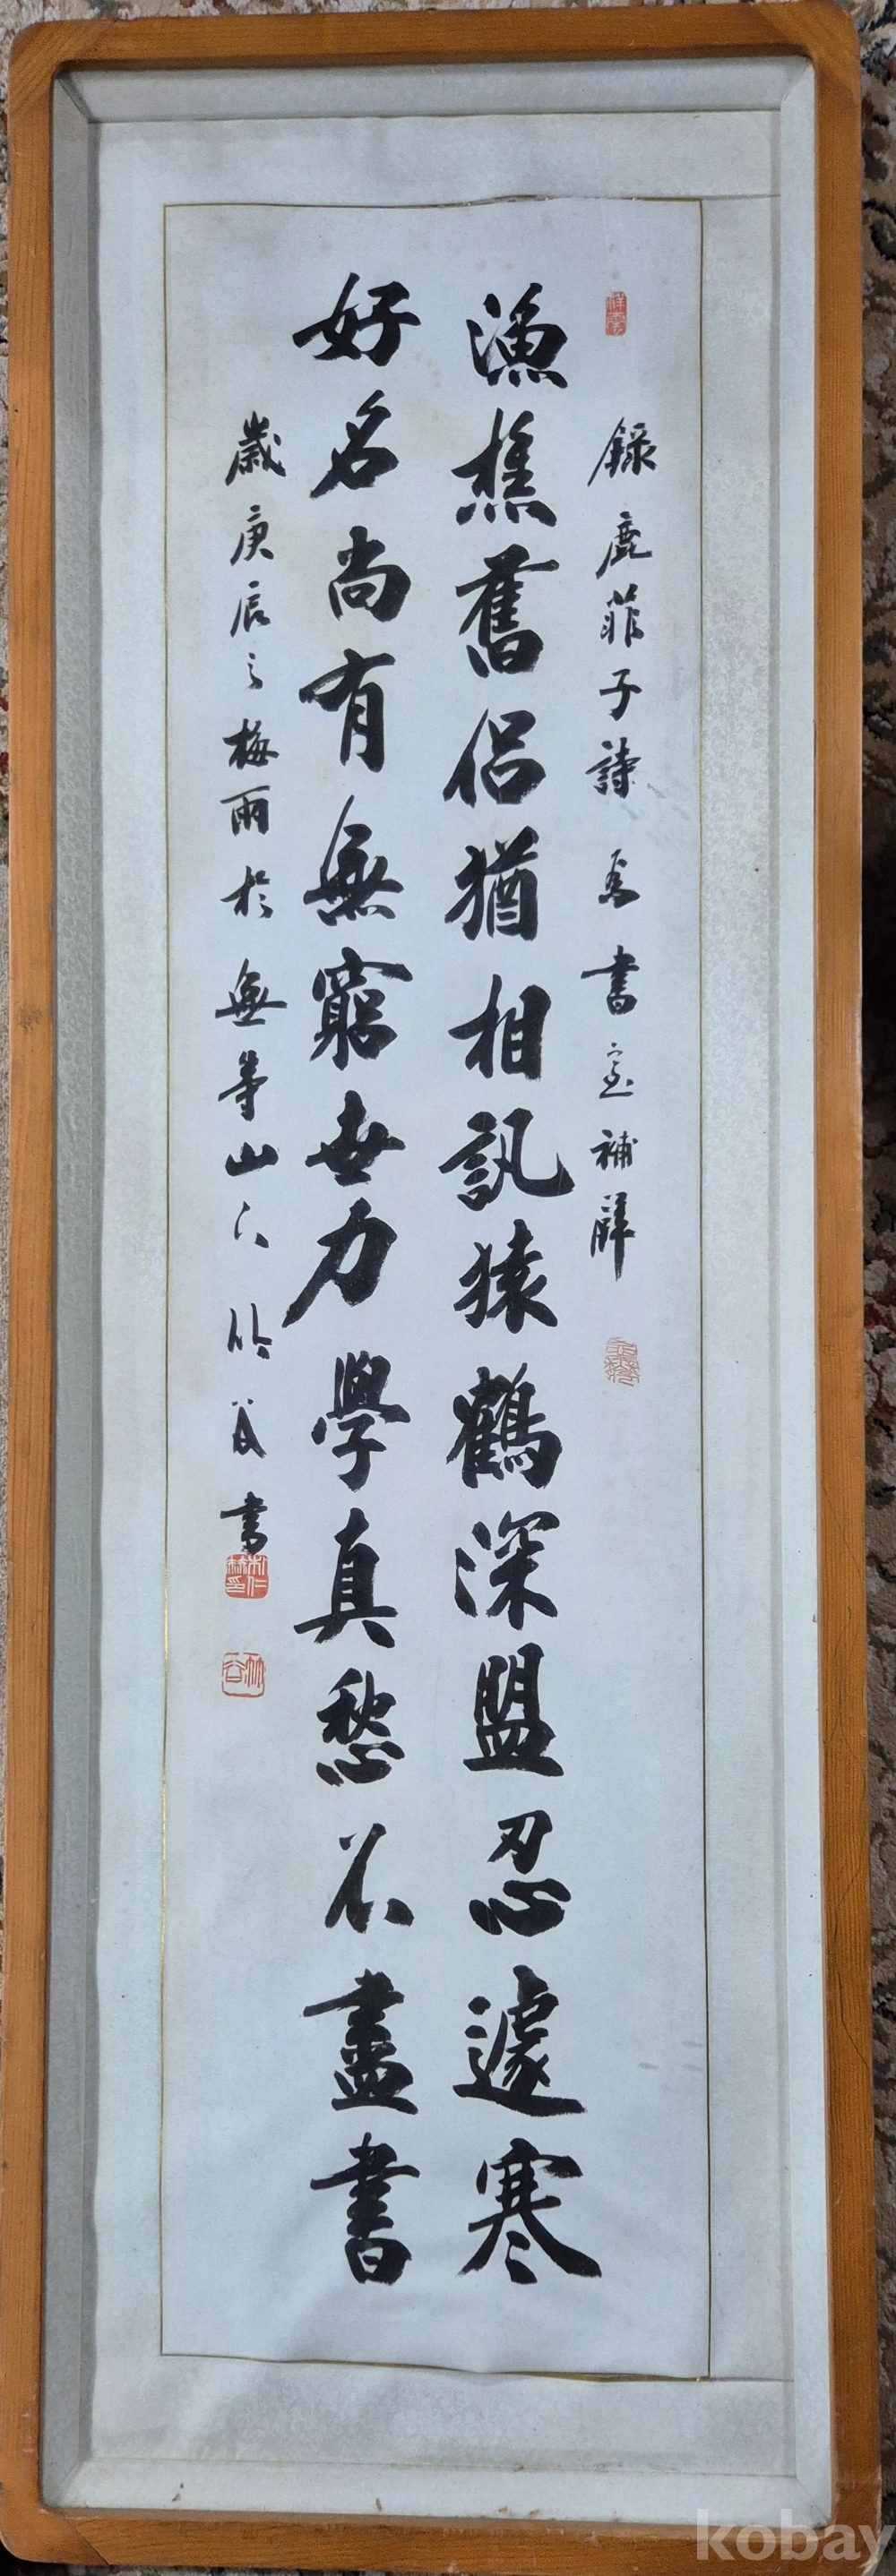 錄鹿菲子詩 為書室補薜
漁樵舊侶猶相訊猿鶴深盟忍遽寒
好名尚有無窮世力學真愁不盡書
歲庚辰之梅雨於無等山下 竹 書
kobay